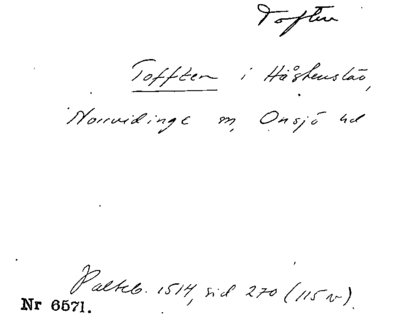 Toften
Tofften i Håstenstad,
Norrvidinge sn, Onsjö hd
Palteb. 1514, sid 270 (115 v).
Nr 6571.